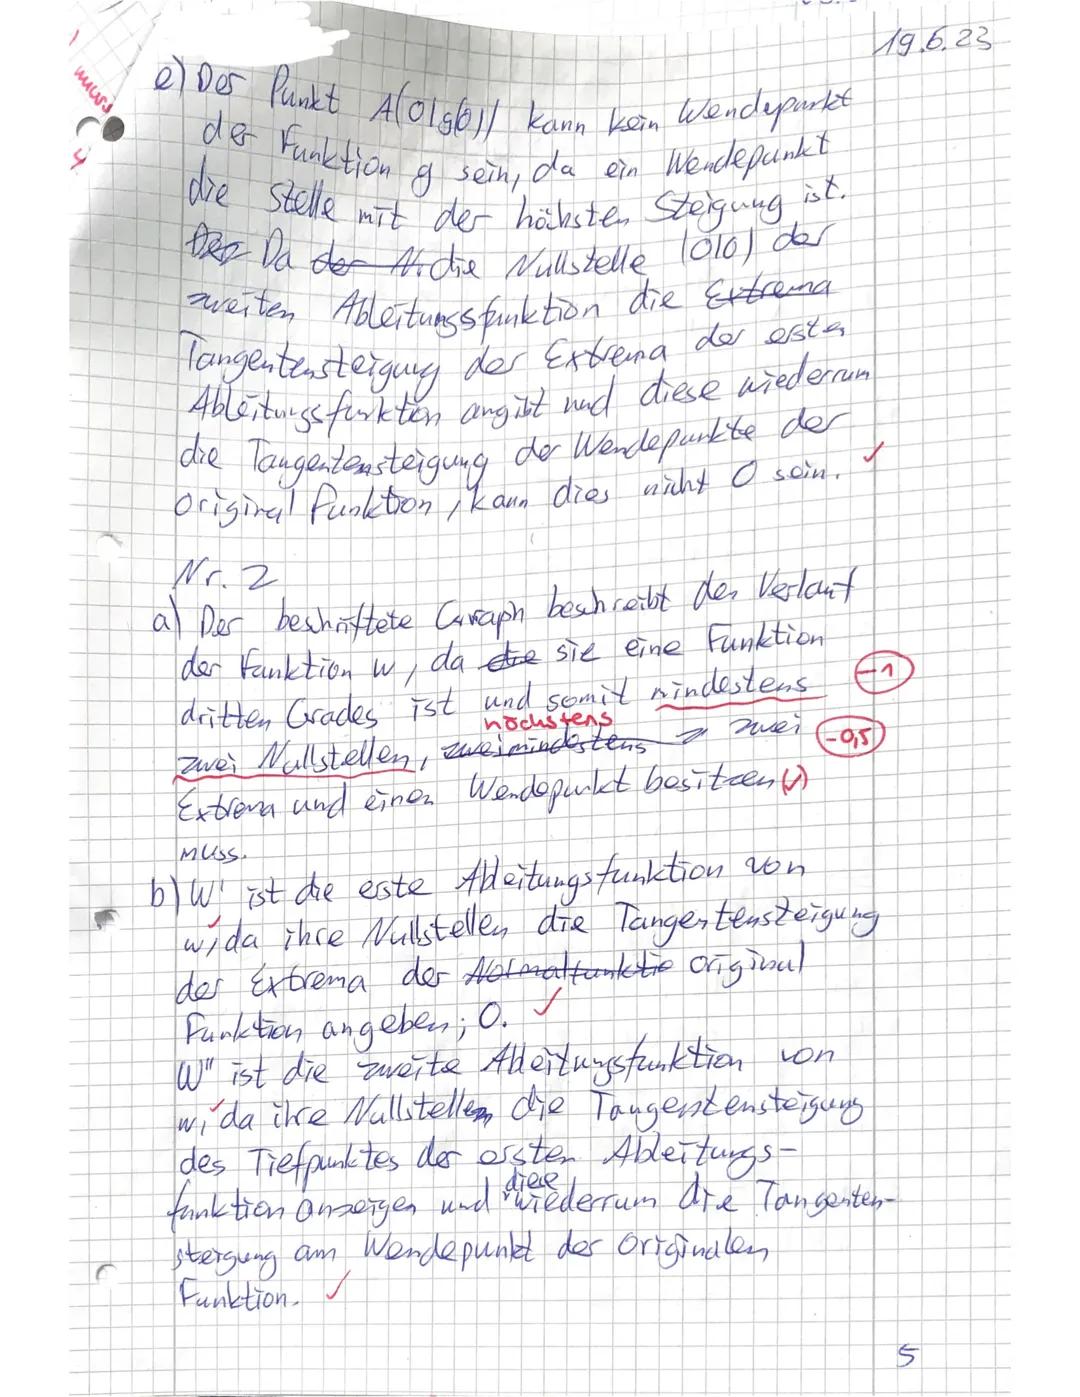 19.6.23
muss
e) Der Punkt A(0|g(0)) kann kein Wendepunkt
der Funktion g sein, da ein Wendepunkt
die Stelle mit der höchsten Steigung ist.
Der Da der N. die Nullstelle (0|0) der
zweiten Ableitungsfunktion die Extrema
Tangentensteigung der Extrema der ersten
Ableitungsfunktion angibt und diese wiederrum
die Tangentensteigung der Wendepunkte der
Original Funktion, kann dies nicht 0 sein. ✓
Nr. 2
a) Der beschriftete Graph beschreibt den Verlauf
der Funktion w, da die sie eine Funktion
dritten Grades ist und somit mindestens -1
höchstens
zwei Nullstellen, zwei mindestens zwei -0,5
Extrema und einen Wendepunkt besitzen (✓)
muss.
b) W' ist die erste Ableitungsfunktion von
w, da ihre Nullstellen die Tangentensteigung
der Extrema der Normalfunktio original
Funktion angeben; 0. ✓
W" ist die zweite Ableitungsfunktion von
w, da ihre Nullstellen die Tangenstensteigung
des Tiefpunktes der ersten Ableitungs-
diese
funktion anzeigen und wiederrum die Tangenten-
steigung am Wendepunkt der Originalen
Funktion. ✓
5